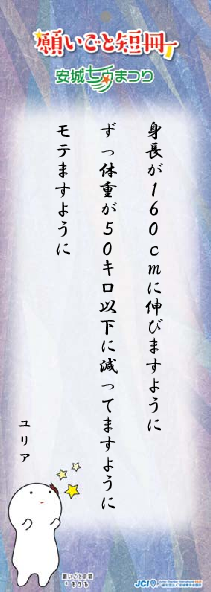 願いごと短冊
安城七夕まつり
身長が160cmに伸びますように
ずっ体重が50キロ以下に減ってますように
モテますように
ユリア